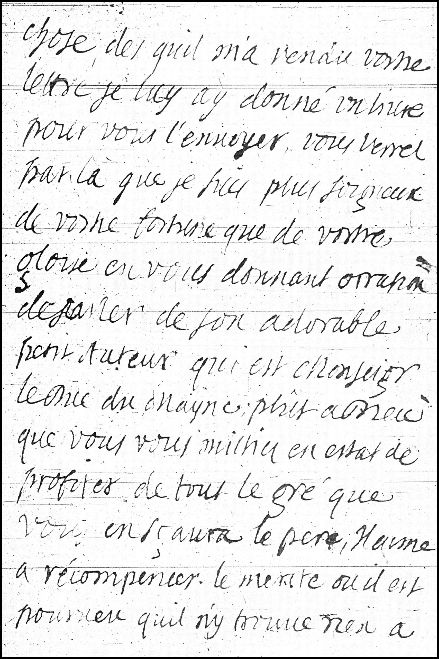 chose, des quil m'a rendu vostre
lettre, je luy ay donné un livre
pour vous l'envoyer, vous verrez
par la que je suis plus soigneux
de vostre fortune que de vostre
gloire en vous donnant occasion
de parler de son adorable
petit Auteur qui est Monseigr
le Duc du Mayne, plût a Dieu
que vous vous missiez en estat de
profiter de tout le gré que
vous en sçaura le pere, Il aime
a récompenser le merite ou il est
pourveu quil n'y trouve rien a